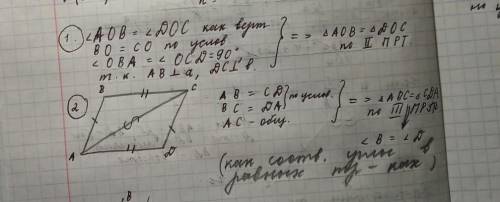 1. ∠AOB = ∠DOC как верт
BO = CO по услов
∠OBA = ∠OCD = 90°
т.к. AB⊥a, DC⊥в.
} => △AOB = △DOC
по II ПРТ.
2
B C
A D
AB = CD
BC = DA } по услов.
AC - общ.
} => △AOC = △CDA
по III ПРТ
∠B = ∠D
(как соотв. углы в
равных тр-ках)
B